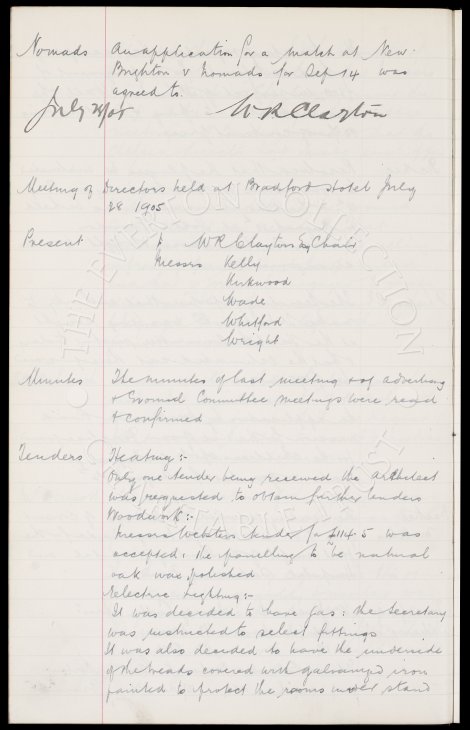 Nomads An application for a match at New
Brighton v Nomads for Sep 14 was
agreed to.
July W R Clayton
Meeting of Directors held at Bradford Hotel July
28 1905
Present W R Clayton Esq Chair
Messrs Kelly
Kirkwood
Wade
Whitford
Wright
Minutes The minutes of last meeting & of advertising
& Ground Committee meetings were read
& confirmed
Tenders Heating :-
Only one tender being received the architect
was requested to obtain further tenders
Woodwork :-
Messrs Websters tender for £114.5 was
accepted : the panelling to be natural
oak wax polished
Electric Lighting :-
It was decided to have gas : the Secretary
was instructed to select fittings
It was also decided to have the underside
of the treads covered with galvanized iron
painted to protect the rooms under stand
THE EVERTON COLLECTION
CHARITABLE TRUST